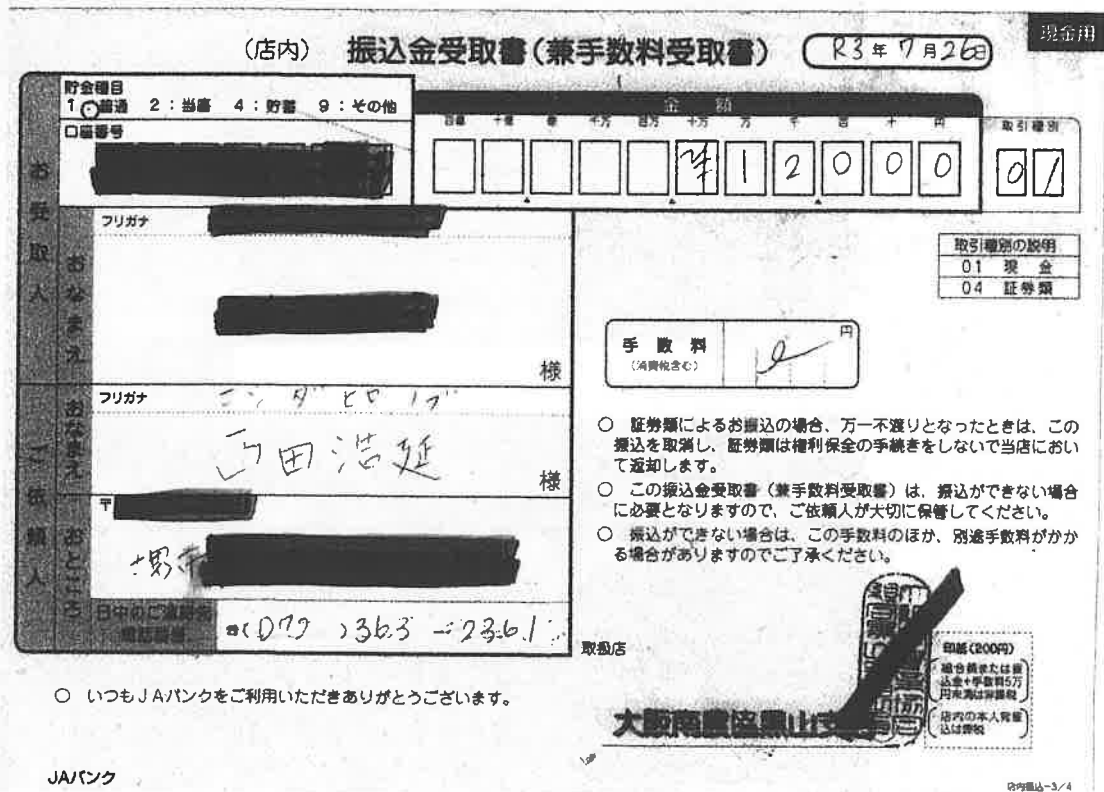 現金用
(店内) 振込金受取書(兼手数料受取書) R3年7月26日
貯金種目
1:普通 2:当座 4:貯蓄 9:その他
金額
口座番号
百億 十億 億 千万 百万 十万 万 千 百 十 円
¥12000
取引種別
01
お受取人
おなまえ
フリガナ
様
取引種別の説明
01 現金
04 証券類
手数料
(消費税含む)
円
ご依頼人
おなまえ
フリガナ
田浩延
様
おところ
〒
堺市
日中のご連絡先
電話番号
☎(072)363-2361
○ 証券類によるお振込の場合、万一不渡りとなったときは、この
振込を取消し、証券類は権利保全の手続きをしないで当店におい
て返却します。
○ この振込金受取書(兼手数料受取書)は、振込ができない場合
に必要となりますので、ご依頼人が大切に保管してください。
○ 振込ができない場合は、この手数料のほか、別途手数料がかか
る場合がありますのでご了承ください。
取扱店
大阪南農協黒山支
印紙(200円)
組合員または振
込金+手数料5万
円未満は非課税
店内の本人宛振
込は非課税
○ いつもJAバンクをご利用いただきありがとうございます。
JAバンク
店内振込-3/4